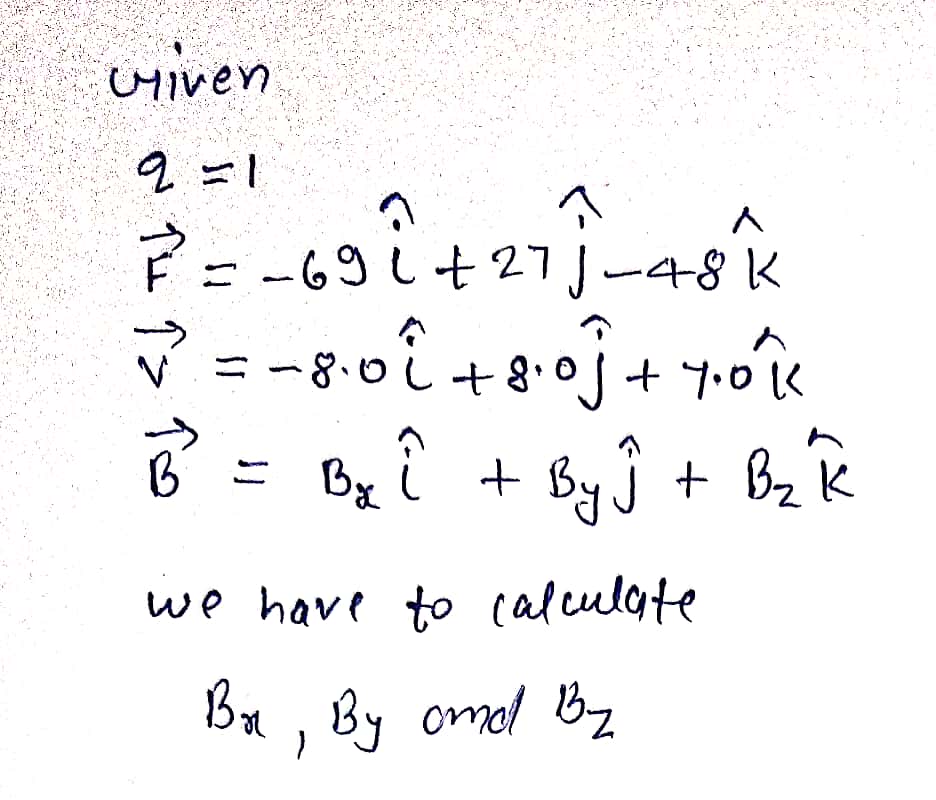 Given
q = 1
F⃗ = -69 î + 27 ĵ - 48 k̂
V⃗ = -8.0 î + 8.0 ĵ + k̂
B⃗ = Bx î + By ĵ + Bz k̂
we have to calculate
Bx, By and Bz